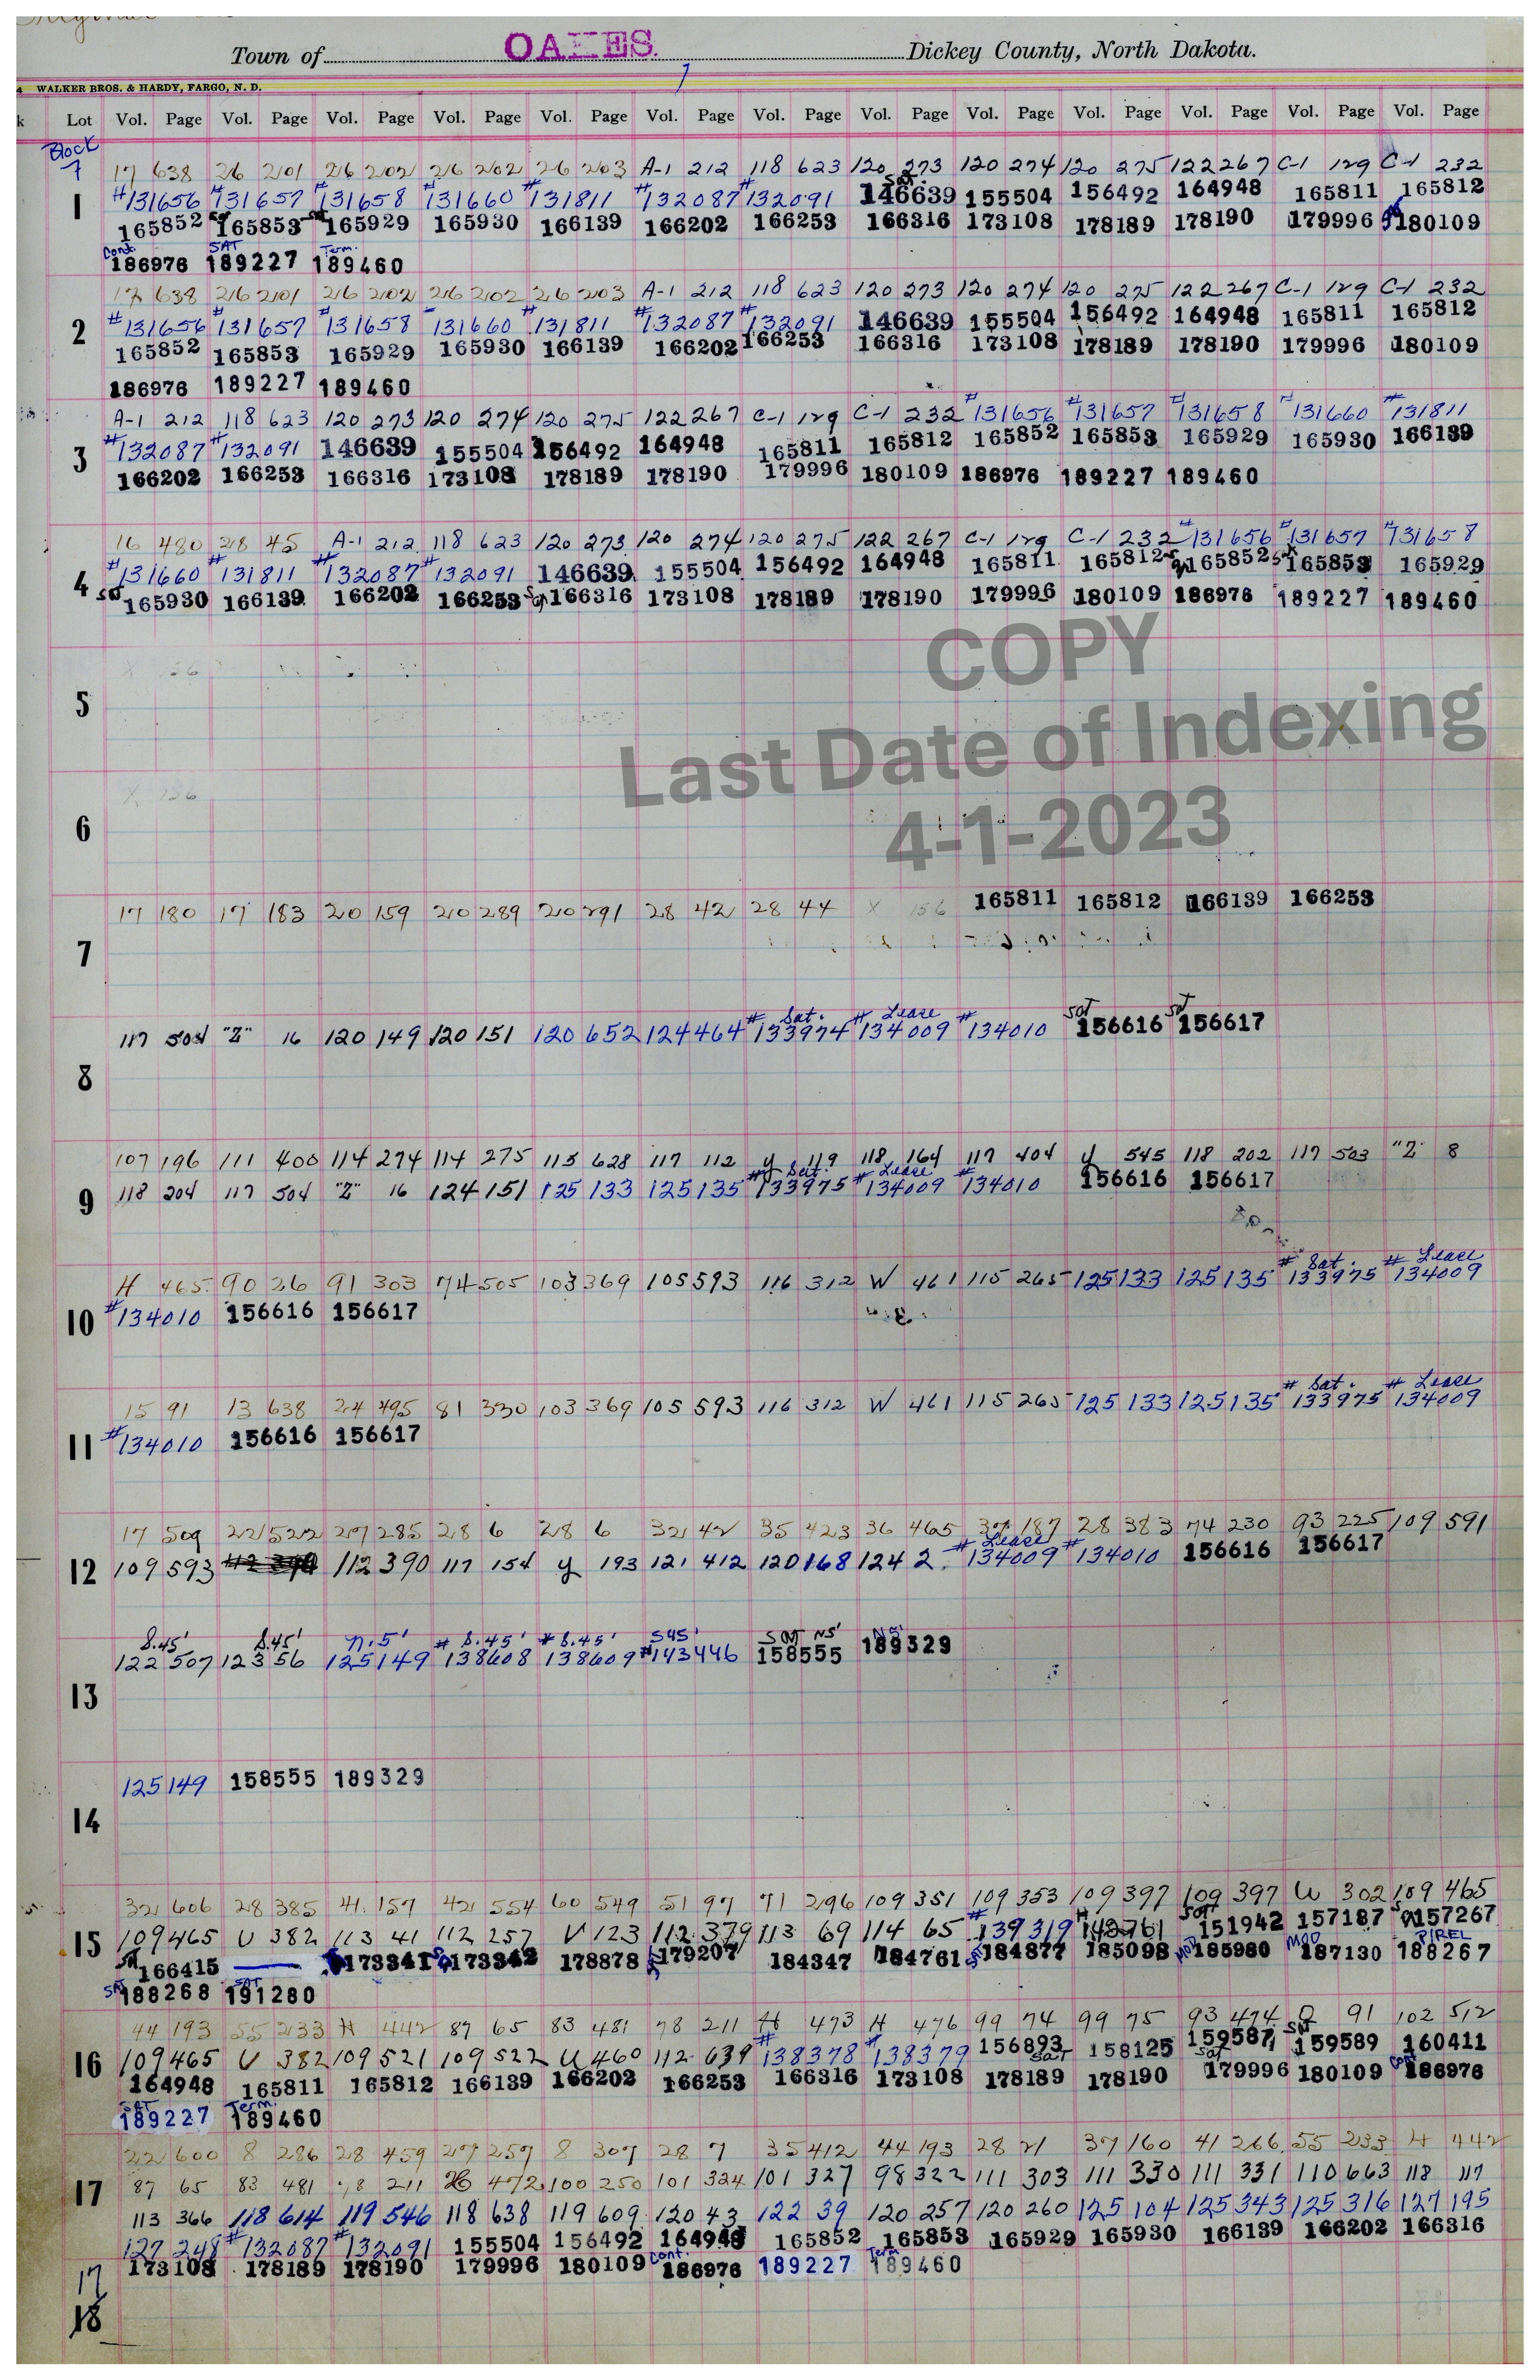 Town of OAKES. Dickey County, North Dakota.
7
WALKER BROS. & HARDY, FARGO, N. D.
Lot Vol. Page Vol. Page Vol. Page Vol. Page Vol. Page Vol. Page Vol. Page Vol. Page Vol. Page Vol. Page Vol. Page Vol. Page Vol. Page
Block
7
17 638 26 201 26 202 26 202 26 203 A-1 212 118 623 120 273 120 274 120 275 122 267 C-1 129 C-1 232
Sat.
1 #131656 #131657 #131658 #131660 #131811 #132087 #132091 146639 155504 156492 164948 165811 165812
165852 Sat 165853 Sat 165929 165930 166139 166202 166253 166316 173108 178189 178190 179996 180109
Cont. SAT Term.
186976 189227 189460
17 638 26 201 26 202 26 202 26 203 A-1 212 118 623 120 273 120 274 120 275 122 267 C-1 129 C-1 232
2 #131656 #131657 #131658 #131660 #131811 #132087 #132091 146639 155504 156492 164948 165811 165812
165852 165853 165929 165930 166139 166202 166253 166316 173108 178189 178190 179996 180109
186976 189227 189460
A-1 212 118 623 120 273 120 274 120 275 122 267 C-1 129 C-1 232 #131656 #131657 #131658 #131660 #131811
3 #132087 #132091 146639 155504 156492 164948 165811 165812 165852 165853 165929 165930 166139
166202 166253 166316 173108 178189 178190 179996 180109 186976 189227 189460
16 480 28 45 A-1 212 118 623 120 273 120 274 120 275 122 267 C-1 129 C-1 232 #131656 #131657 #131658
4 #131660 #131811 #132087 #132091 146639 155504 156492 164948 165811 165812 165852 165853 165929
Sat 165930 166139 166202 166253 Sat 166316 173108 178189 178190 179996 180109 186976 189227 189460
COPY
Last Date of Indexing
4-1-2023
X 156
5
X 156
6
17 180 17 183 20 159 20 289 20 291 28 42 28 44 X 156 165811 165812 166139 166253
7
Sat. Lease Sat Sat
117 504 "Z" 16 120 149 120 151 120 652 124 464 #133974 #134009 #134010 156616 156617
8
107 196 111 400 114 274 114 275 115 628 117 112 y 119 118 164 117 404 y 545 118 202 117 503 "Z" 8
Sat. Lease
9 118 204 117 504 "Z" 16 124 151 125 133 125 135 #133975 #134009 #134010 156616 156617
Sat. Lease
H 465 90 26 91 303 74 505 103 369 105 593 116 312 W 461 115 265 125 133 125 135 #133975 #134009
10 #134010 156616 156617
Sat. Lease
15 91 13 638 24 495 81 330 103 369 105 593 116 312 W 461 115 265 125 133 125 135 #133975 #134009
11 #134010 156616 156617
17 509 22 522 27 285 28 6 28 6 32 42 35 423 36 465 37 187 28 383 74 230 93 225 109 591
Lease
12 109 593 112 390 117 154 y 193 121 412 120 168 124 2 #134009 #134010 156616 156617
S.45' S.45' N.5' S.45' S.45' S45' SAT N5' N5'
122 507 123 56 125 149 #138608 #138609 #143446 158555 189329
13
125 149 158555 189329
14
32 606 28 385 41 157 42 554 60 549 51 97 71 296 109 351 109 353 109 397 109 397 W 302 109 465
15 109 465 U 382 113 41 112 257 V 123 112 379 113 69 114 65 #139319 #142761 Sat 151942 157187 157267
Sat 166415 173341 173342 178878 179207 184347 184761 184877 185098 MOD 185980 MOD 187130 P/REL 188267
SAT 188268 SAT 191280
44 193 55 233 H 442 87 65 83 481 78 211 H 473 H 476 99 74 99 75 93 474 Q 91 102 512
16 109 465 U 382 109 521 109 522 U 460 112 639 #138378 #138379 156893 158125 159587 Sat 159589 160411
164948 165811 165812 166139 166202 166253 166316 173108 Sat 178189 178190 Sat 179996 180109 Cont 186976
SAT 189227 Term. 189460
22 600 8 286 28 459 27 257 8 307 28 7 35 412 44 193 28 21 37 160 41 266 55 233 H 442
17 87 65 83 481 78 211 26 472 100 250 101 324 101 327 98 322 111 303 111 330 111 331 110 663 118 117
113 366 118 614 119 546 118 638 119 609 120 43 122 39 120 257 120 260 125 104 125 343 125 316 127 195
127 248 #132087 #132091 155504 156492 164948 165852 165853 165929 165930 166139 166202 166316
17 173108 178189 178190 179996 180109 Cont. 186976 189227 Term 189460
18